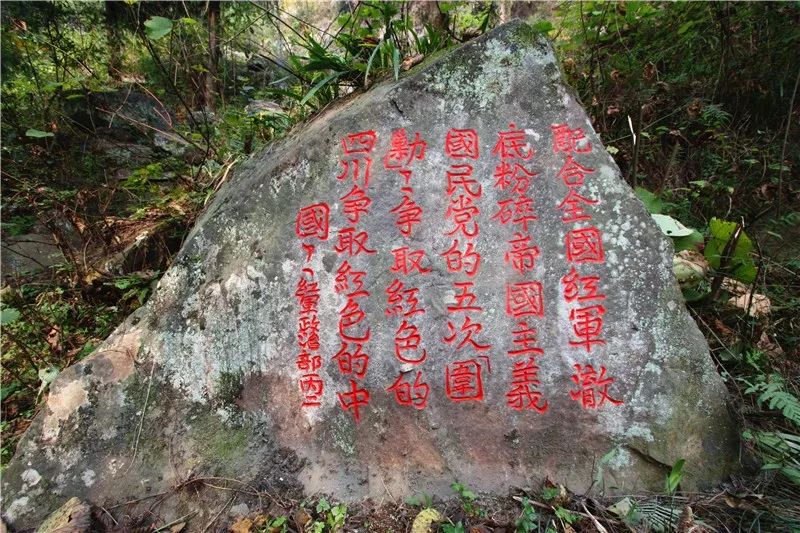 配合全國红軍澈
底粉碎帝國主義
國民党的五次「圍
勦」、争取紅色的
四川争取紅色的中
國」、軍政治部丙二